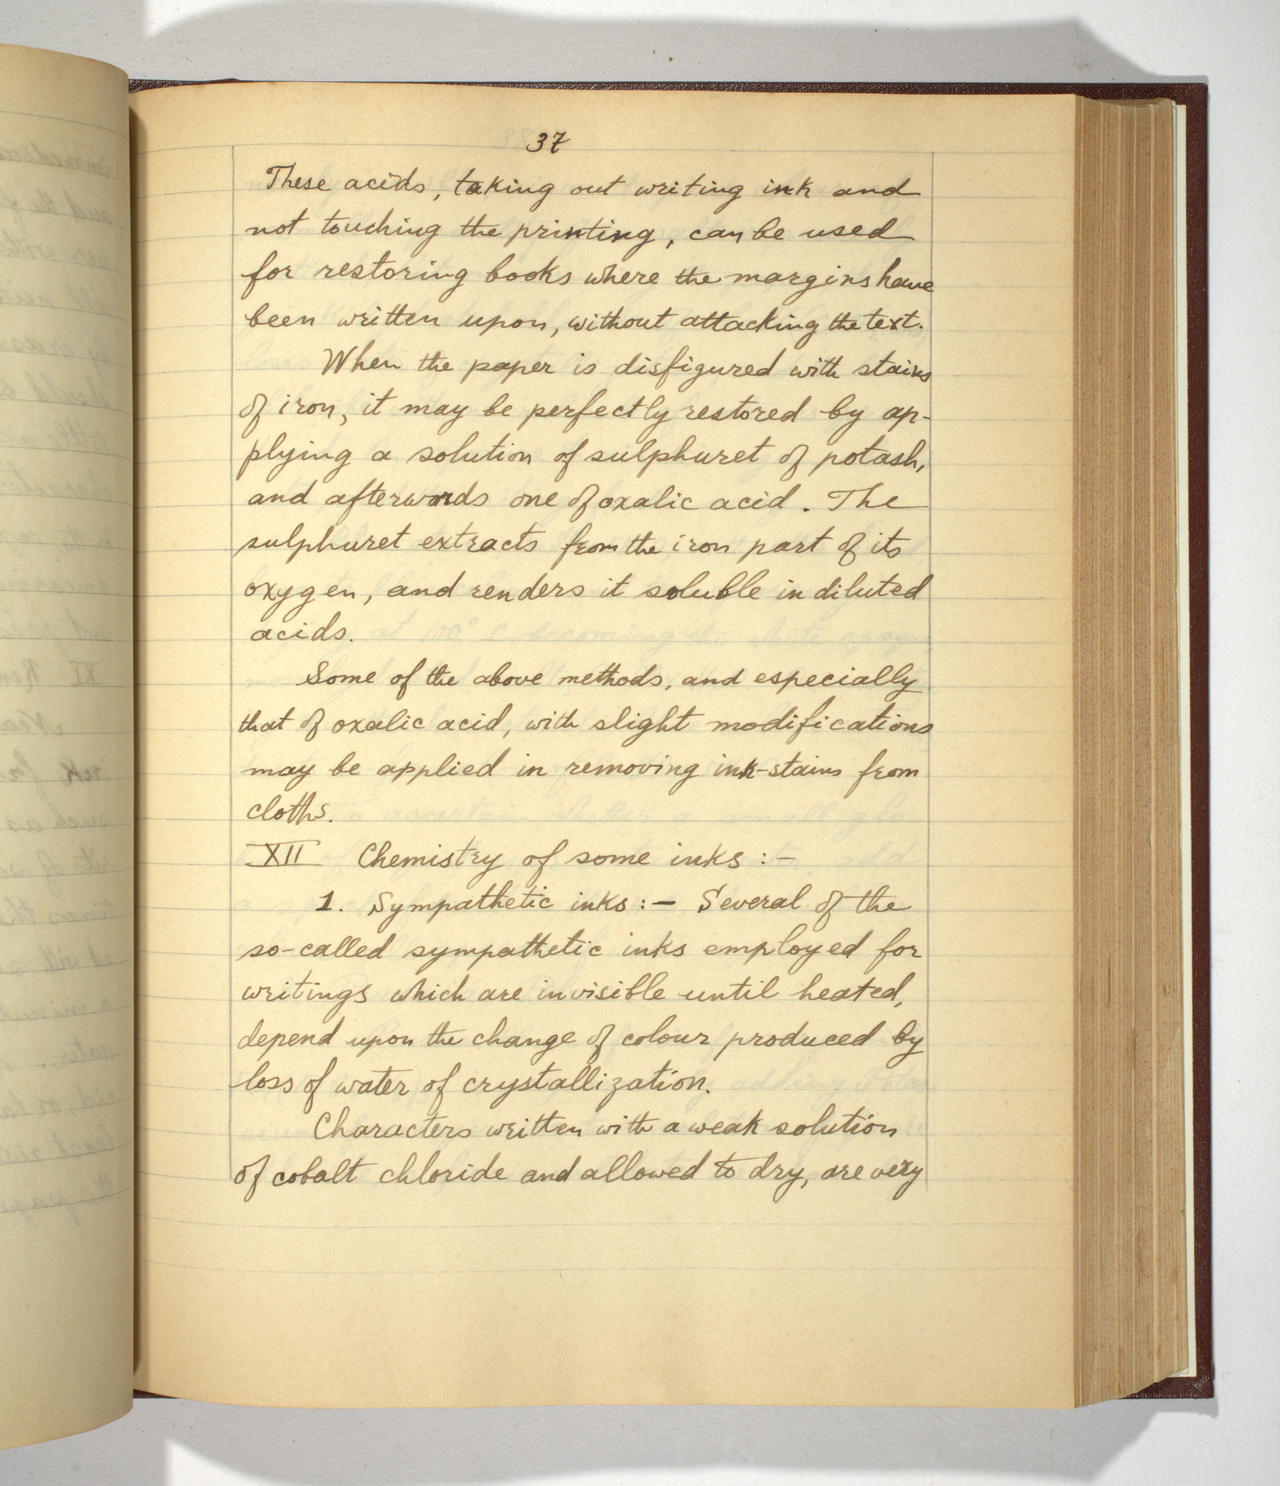 37
These acids, taking out writing ink and
not touching the printing, can be used
for restoring books where the margins have
been written upon, without attacking the text.
When the paper is disfigured with stains
of iron, it may be perfectly restored by ap-
plying a solution of sulphuret of potash,
and afterwards one of oxalic acid. The
sulphuret extracts from the iron part of its
oxygen, and renders it soluble in diluted
acids.
Some of the above methods, and especially
that of oxalic acid, with slight modifications
may be applied in removing ink-stains from
cloths.
XII Chemistry of some inks :-
1. Sympathetic inks :- Several of the
so-called sympathetic inks employed for
writings which are invisible until heated,
depend upon the change of colour produced by
loss of water of crystallization.
Characters written with a weak solution
of cobalt chloride and allowed to dry, are very